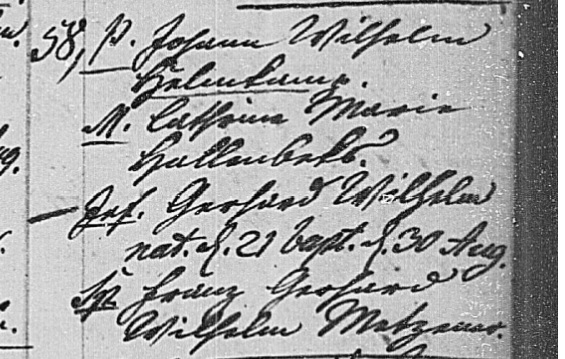 58, P. Johann Wilhelm
Helmkamp.
M. Cathrine Marie
Hallenbeks.
Inf. Gerhard Wilhelm
nat. d. 21 bapt. d. 30 Aug.
Sp. Franz Gerhard
Wilhelm